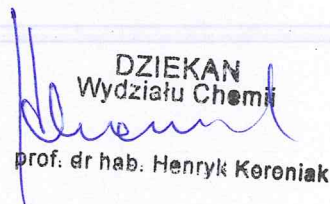 DZIEKAN
Wydziału Chemii
prof. dr hab. Henryk Koroniak